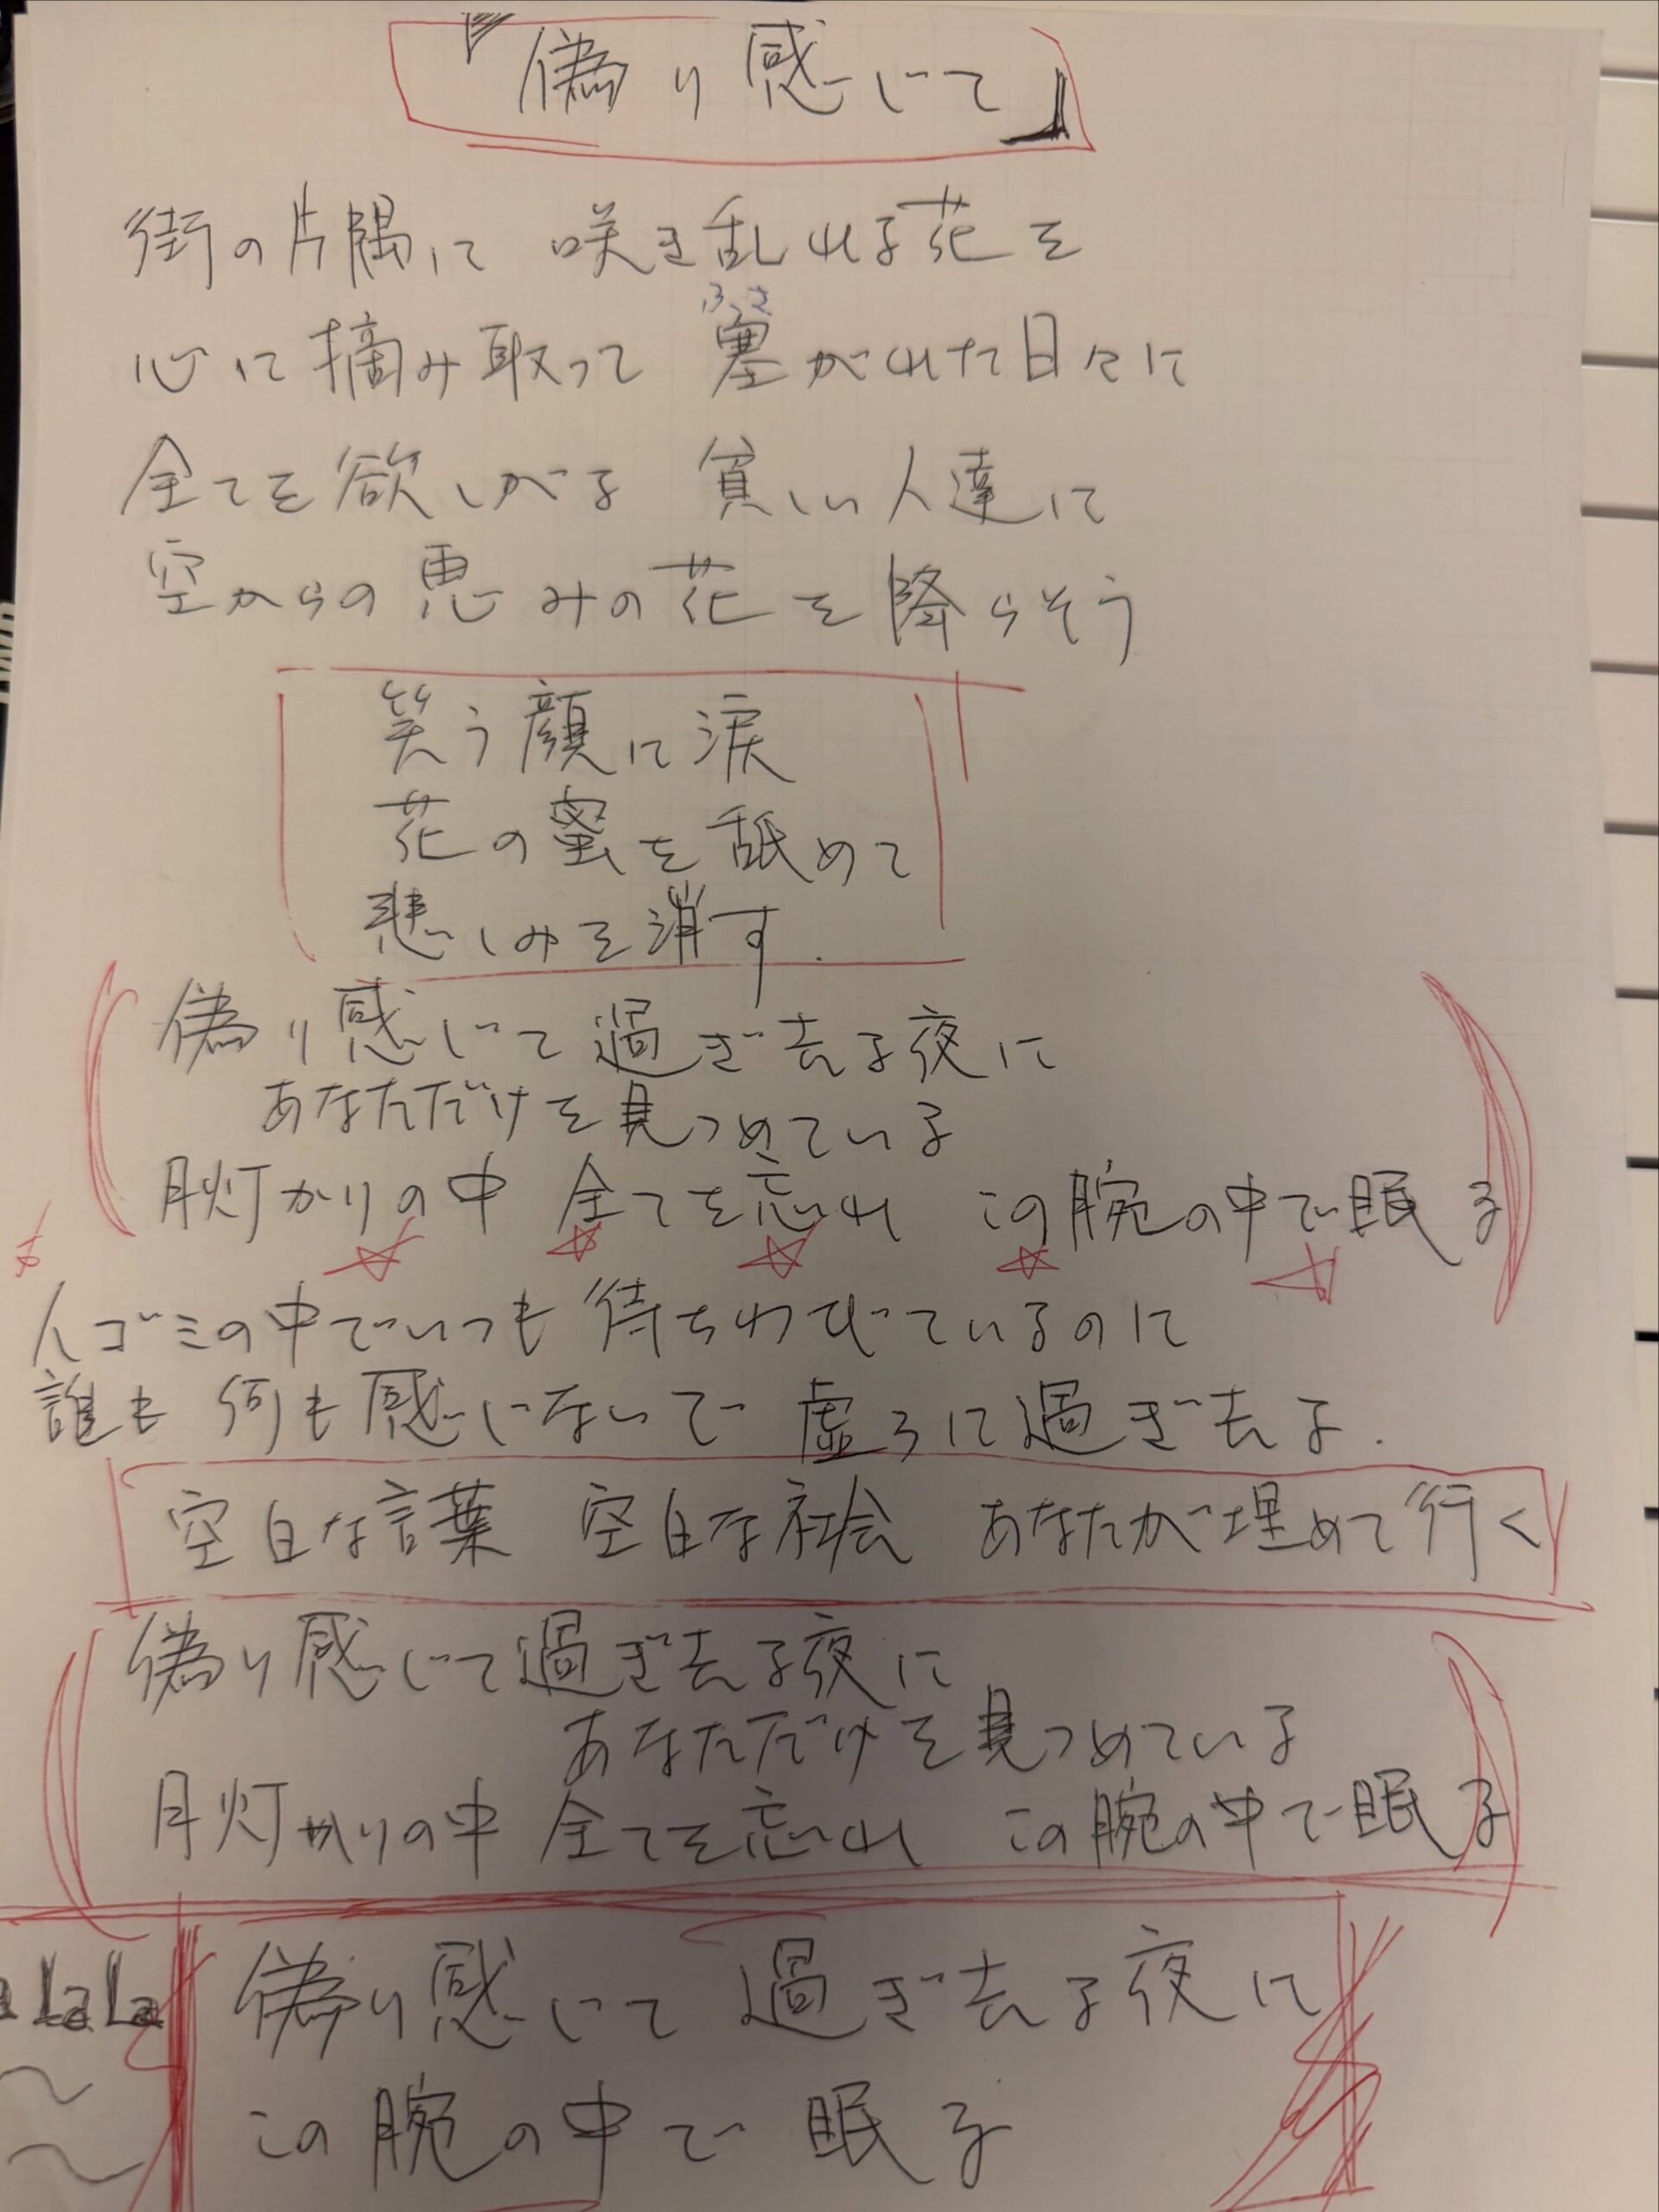 『偽り感じて』
街の片隅に 咲き乱れる花を
ふさ
心に摘み取って 塞がれた日々に
全てを欲しがる 貧しい人達に
空からの恵みの花を降らそう
笑う顔に涙
花の蜜を舐めて
悲しみを消す.
偽り感じて過ぎ去る夜に
あなただけを見つめている
月灯かりの中 全てを忘れ この腕の中で眠る
人ゴミの中でいつも待ちわびているのに
誰も何も感じないで虚ろに過ぎ去る.
空白な言葉 空白な社会 あなたが埋めて行く
偽り感じて過ぎ去る夜に
あなただけを見つめている
月灯かりの中 全てを忘れ この腕の中で眠る
a LaLa
偽り感じて 過ぎ去る夜に
この腕の中で眠る